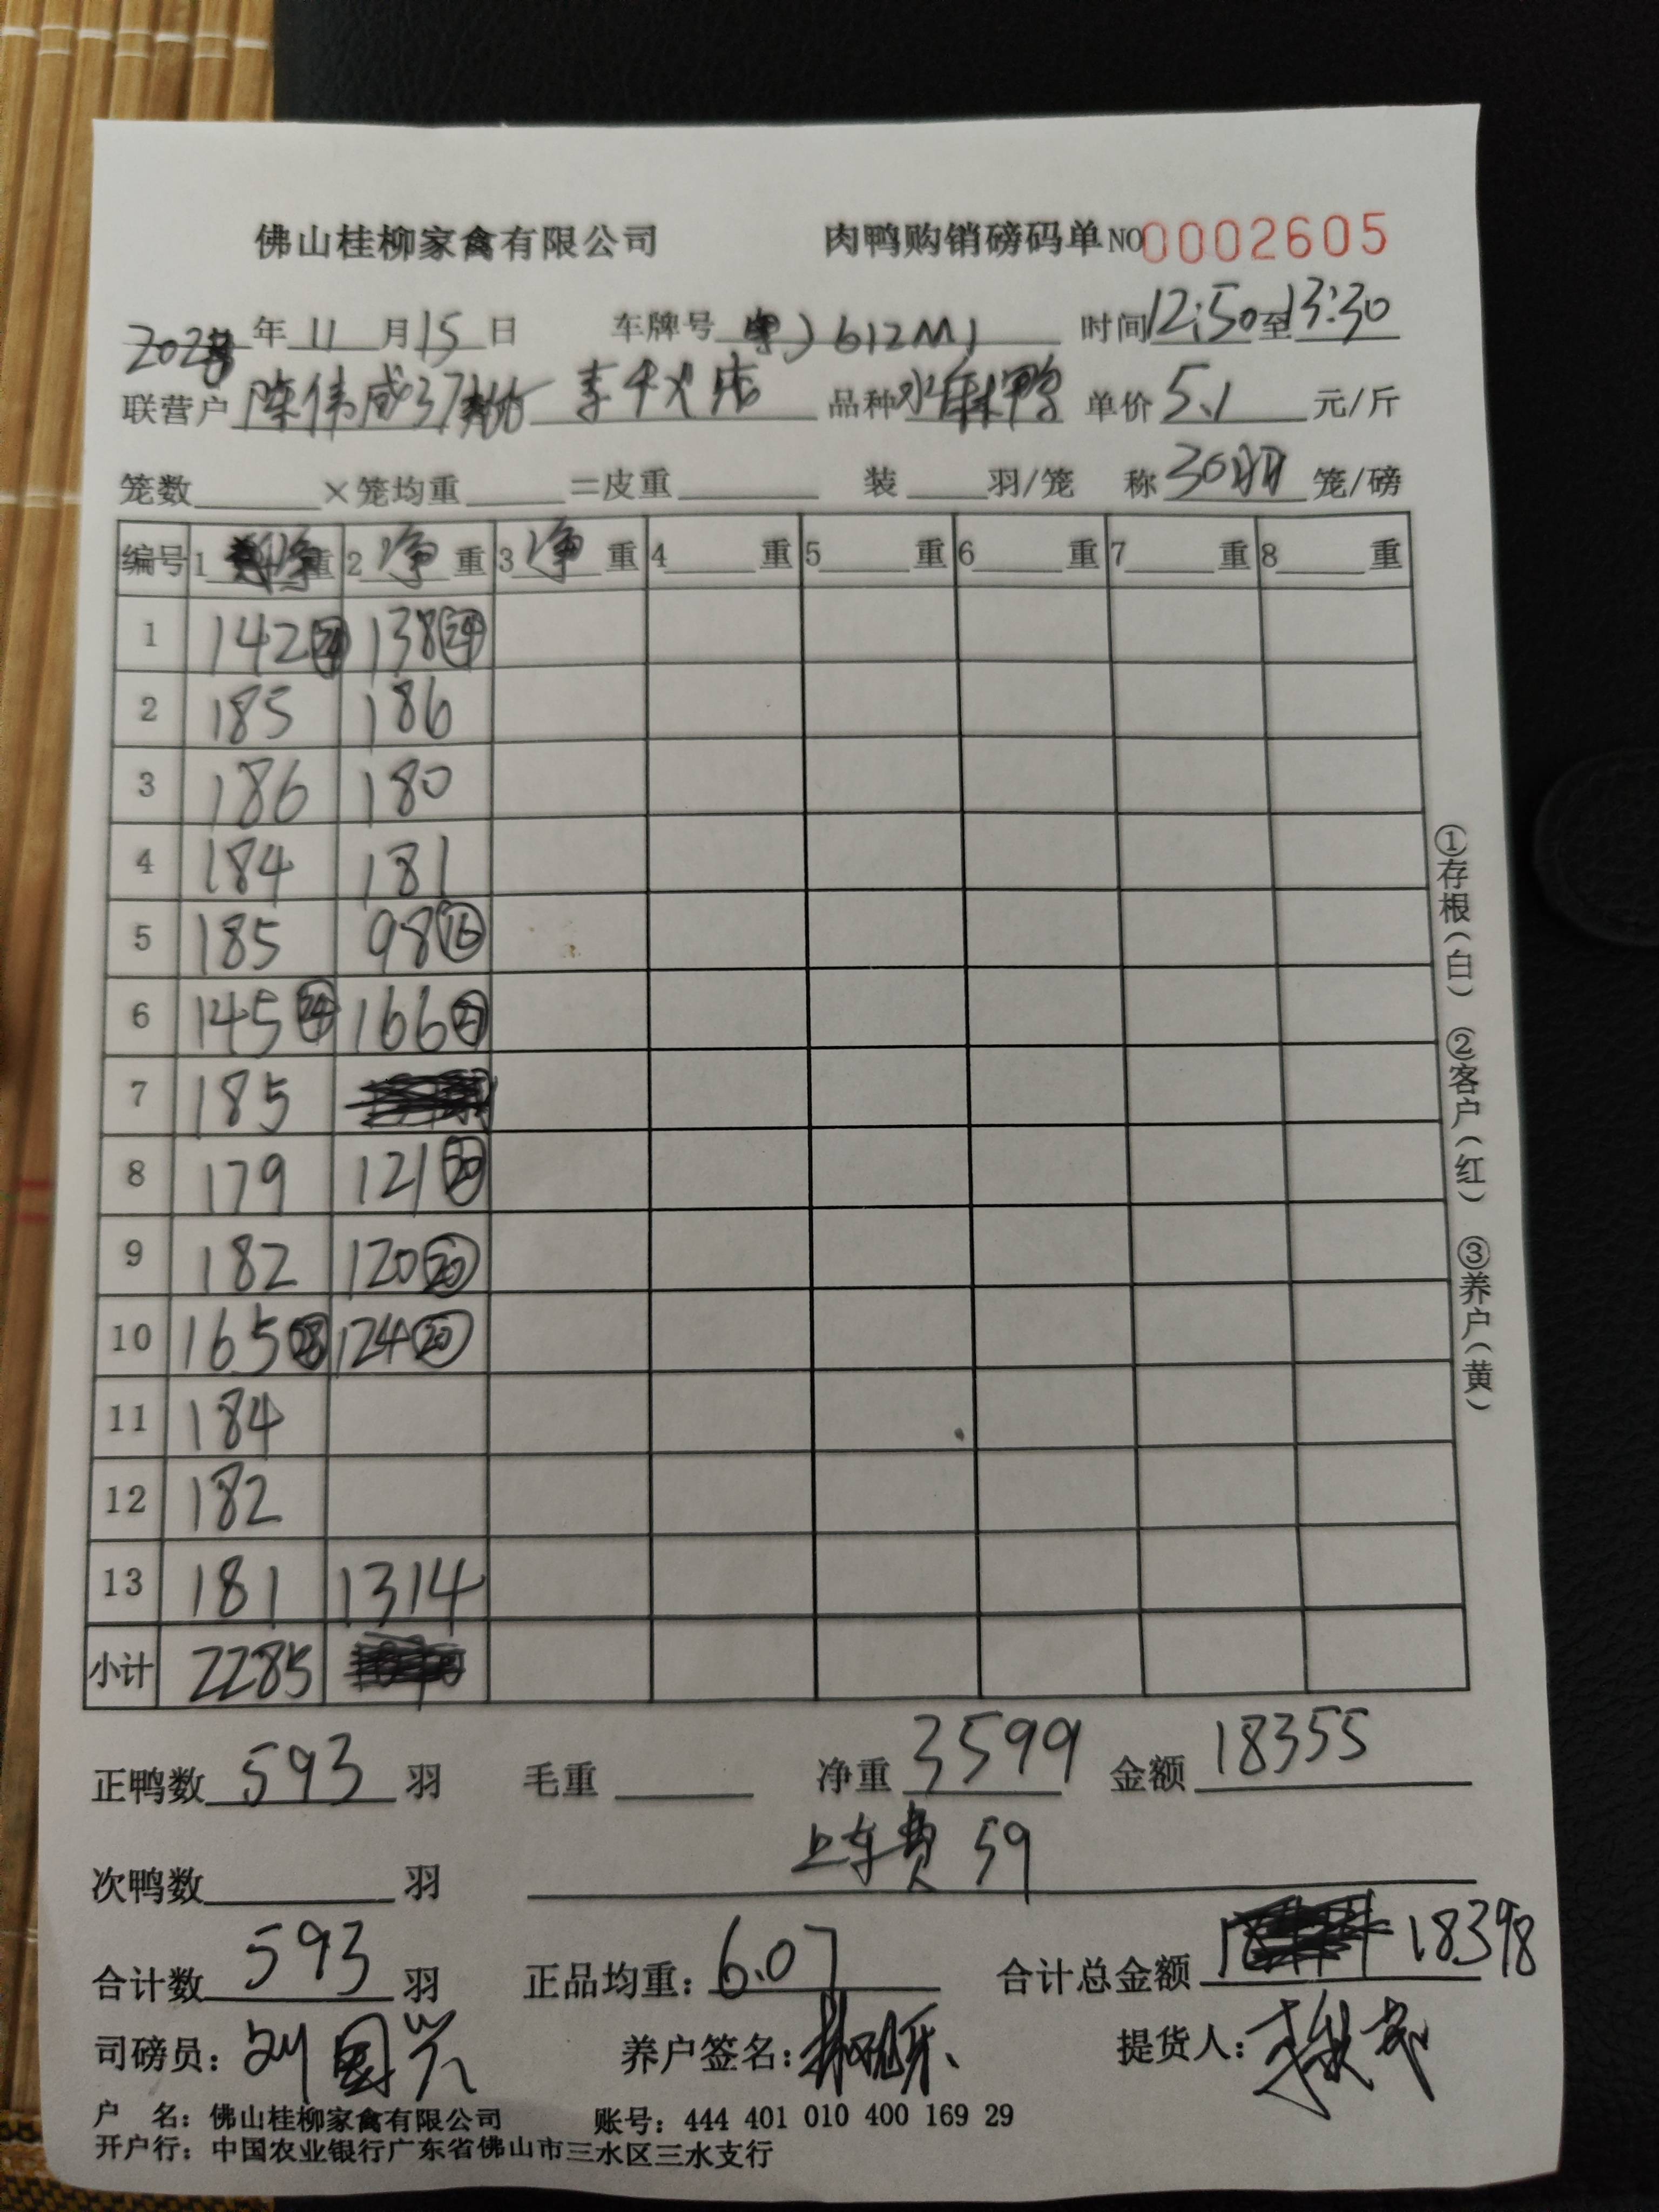 佛山桂柳家禽有限公司 肉鸭购销磅码单 NO 0002605
年 11 月 15 日 车牌号 612M1 时间 12:50 至 13:30
联营户 陈伟威37 品种 水麻鸭 单价 5.1 元/斤
笼数 ×笼均重 =皮重 装 羽/笼 称 30羽 笼/磅
编号 1 净 重 2 净 重 3 净 重 4 重 5 重 6 重 7 重 8 重
1 142 138 24
2 185 186
3 186 180
4 184 181
5 185 98 16
6 145 24 166
7 185
8 179 121 20
9 182 120 20
10 165 28 124 20
11 184
12 182
13 181 1314
小计 2285
正鸭数 593 羽 毛重 净重 3599 金额 18355
次鸭数 羽 上车费 59
合计数 593 羽 正品均重: 6.07 合计总金额 18398
司磅员: 刘国兴 养户签名: 提货人:
户 名: 佛山桂柳家禽有限公司 账号: 444 401 010 400 169 29
开户行: 中国农业银行广东省佛山市三水区三水支行
①存根(白) ②客户(红) ③养户(黄)